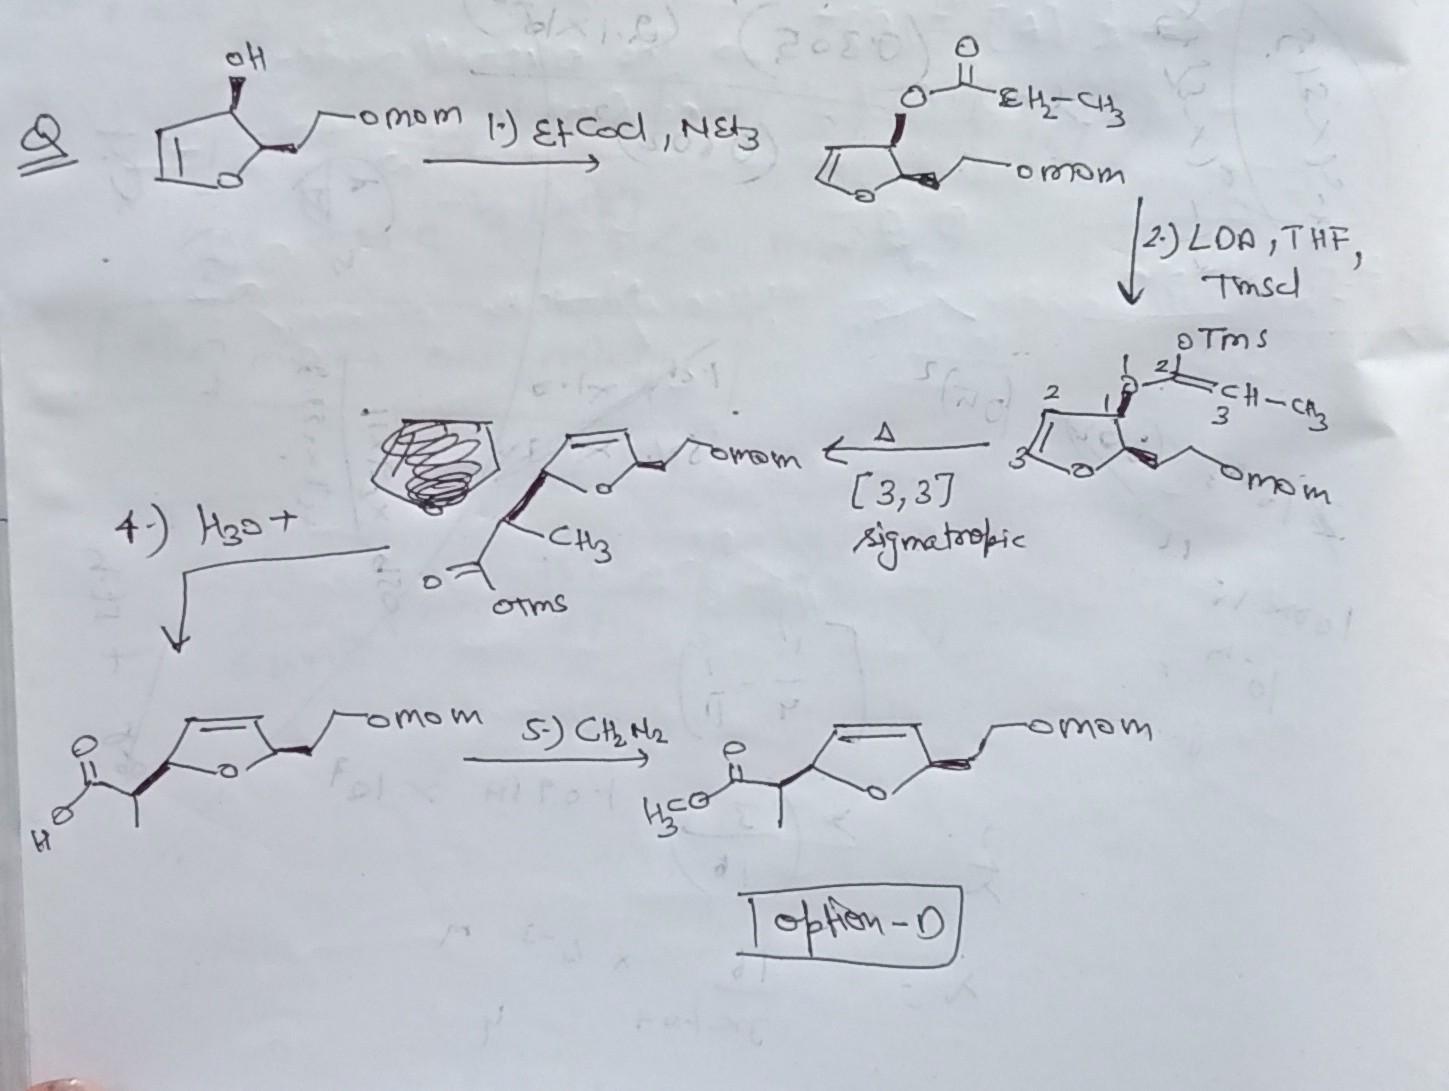 Q
OH
O
OMOM
1.) EtCocl, NEt3
O
O
CH2-CH3
O
OMOM
2.) LDA, THF,
TMSCl
OTMS
1
2
O
CH-CH3
3
2
1
3
O
OMOM
Δ
[3,3]
sigmatropic
OMOM
O
CH3
O
OTMS
4.) H3O+
O
O
H
O
OMOM
5.) CH2N2
O
H3CO
O
OMOM
option-D